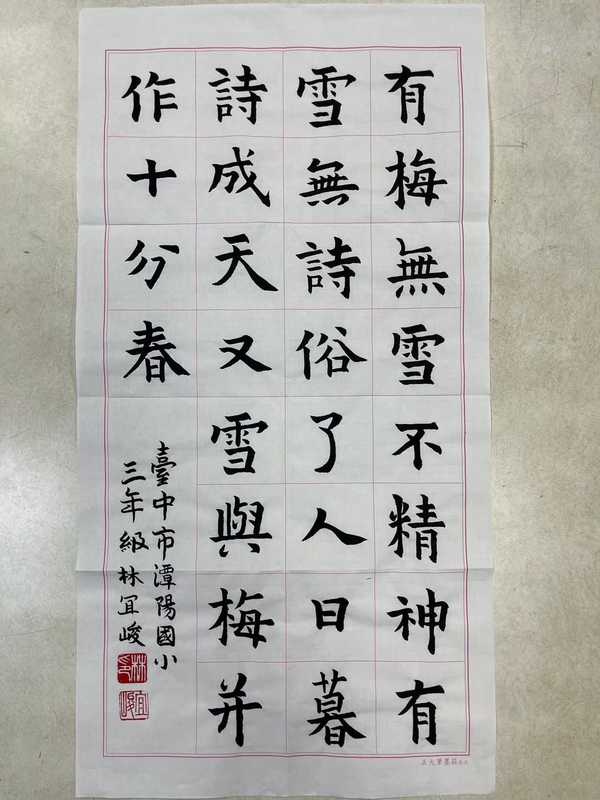 有梅無雪不精神有
雪無詩俗了人日暮
詩成天又雪與梅并
作十分春
臺中市潭陽國小
三年級林宜峻
林宜峻